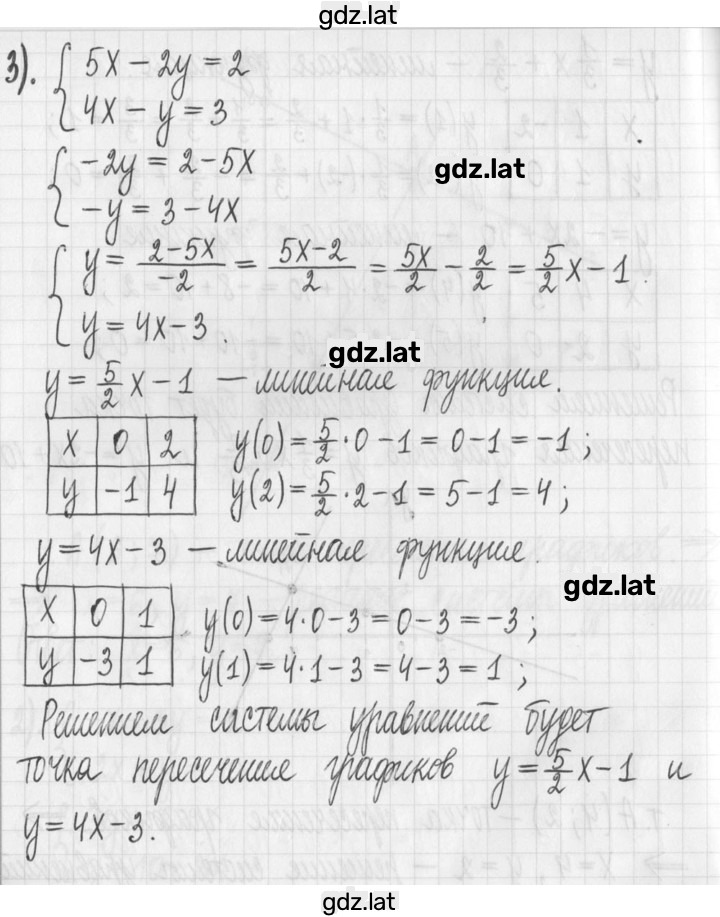 gdz.lat
3). { 5x − 2y = 2
4x − y = 3
{ −2y = 2 − 5x
gdz.lat
−y = 3 − 4x
{ y = \frac{2−5x}{−2} = \frac{5x−2}{2} = \frac{5x}{2} − \frac{2}{2} = \frac{5}{2}x − 1.
y = 4x − 3.
gdz.lat
y = \frac{5}{2}x − 1 — линейная функция.
x 0 2 y(0) = \frac{5}{2}·0 − 1 = 0 − 1 = −1;
y −1 4 y(2) = \frac{5}{2}·2 − 1 = 5 − 1 = 4;
y = 4x − 3 — линейная функция.
gdz.lat
x 0 1 y(0) = 4·0 − 3 = 0 − 3 = −3;
y −3 1 y(1) = 4·1 − 3 = 4 − 3 = 1;
Решением системы уравнений будет
точка пересечения графиков y = \frac{5}{2}x − 1 и
y = 4x − 3.
gdz.lat